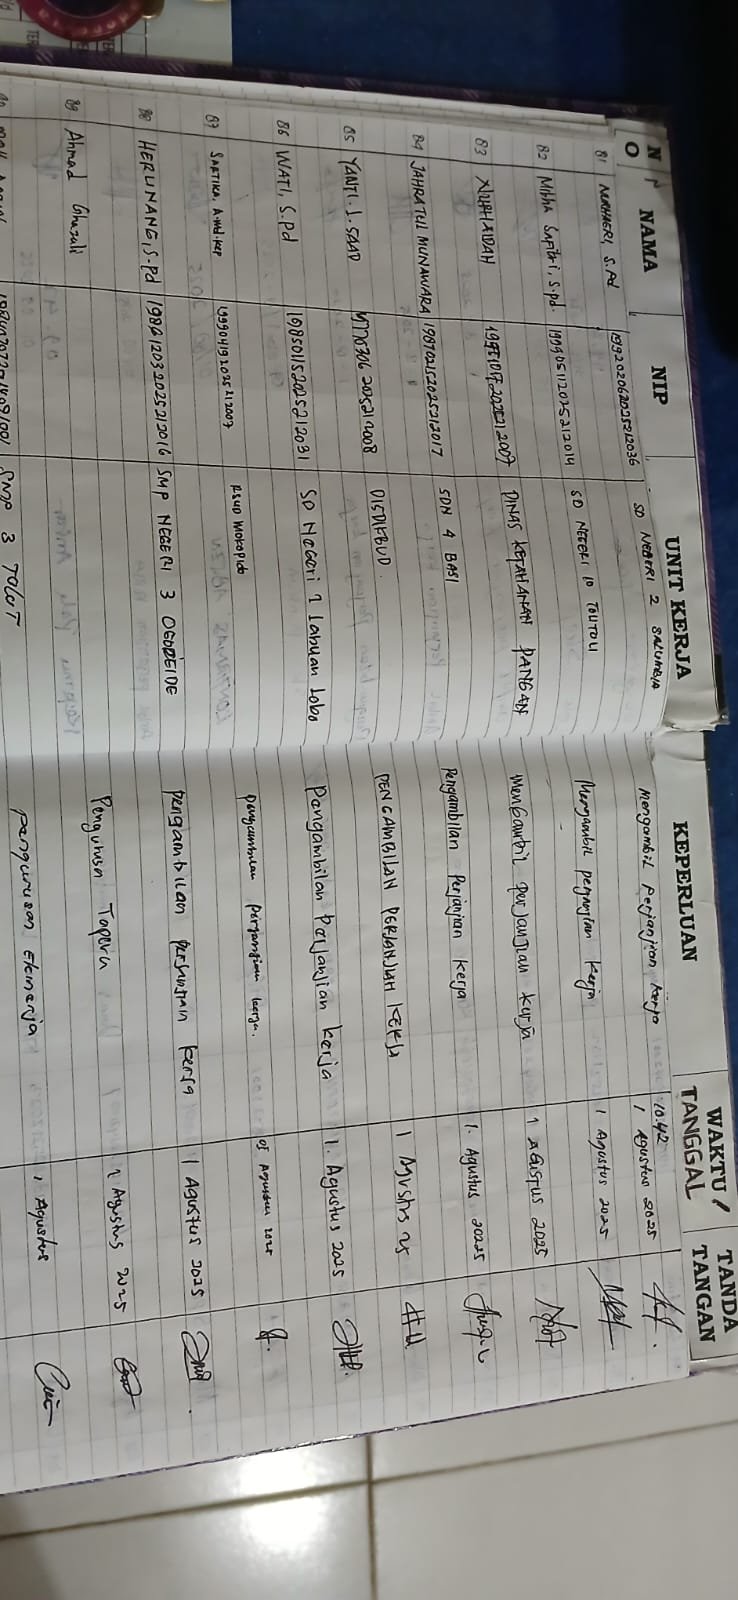 NO NAMA NIP UNIT KERJA KEPERLUAN WAKTU / TANGGAL TANDA TANGAN
81 NURHAERI, S.Pd 199202062025212036 SD NEGERI 2 SALUMBIA Mengambil Perjanjian Kerja 10:42 1 Agustus 2025
82 Mibha Safitri, S.Pd. 199905112025212014 SD NEGERI 10 TOLITOLI Mengambil perjanjian kerja 1 Agustus 2025
83 NURHAIDAH DINAS KETAHANAN PANGAN Mengambil perjanjian kerja 1 AGUSTUS 2025
84 JAHRATUL MUNAWARA 198702152025212017 SDN 4 BASI Pengambilan Perjanjian Kerja 1. Agustus 20225
85 YANTI. J. SAAD DISDIKBUD. PENGAMBILAN PERJANJIAN KERJA 1 AGUSTUS 25
86 WATI, S.Pd 198501152025212031 SD NEGERI 2 Labuan Lobo Pengambilan Perjanjian kerja 1. Agustus 2025
87 SARTIKA, A.Md.Kep 199904192025212007 RSUD MOKOPIDO pengambilan perjanjian kerja. 01 Agustus 2025
88 HERLINANG, S.Pd 198612032025212016 SMP NEGERI 3 OGODEIDE pengambilan perjanjian kerja 1 AGUSTUS 2025
89 Ahmad Ghazali Pengurusan Tapera 1 Agustus 2025
SMP 3 TOLUT pengurusan Ekinerja 1 Agustus